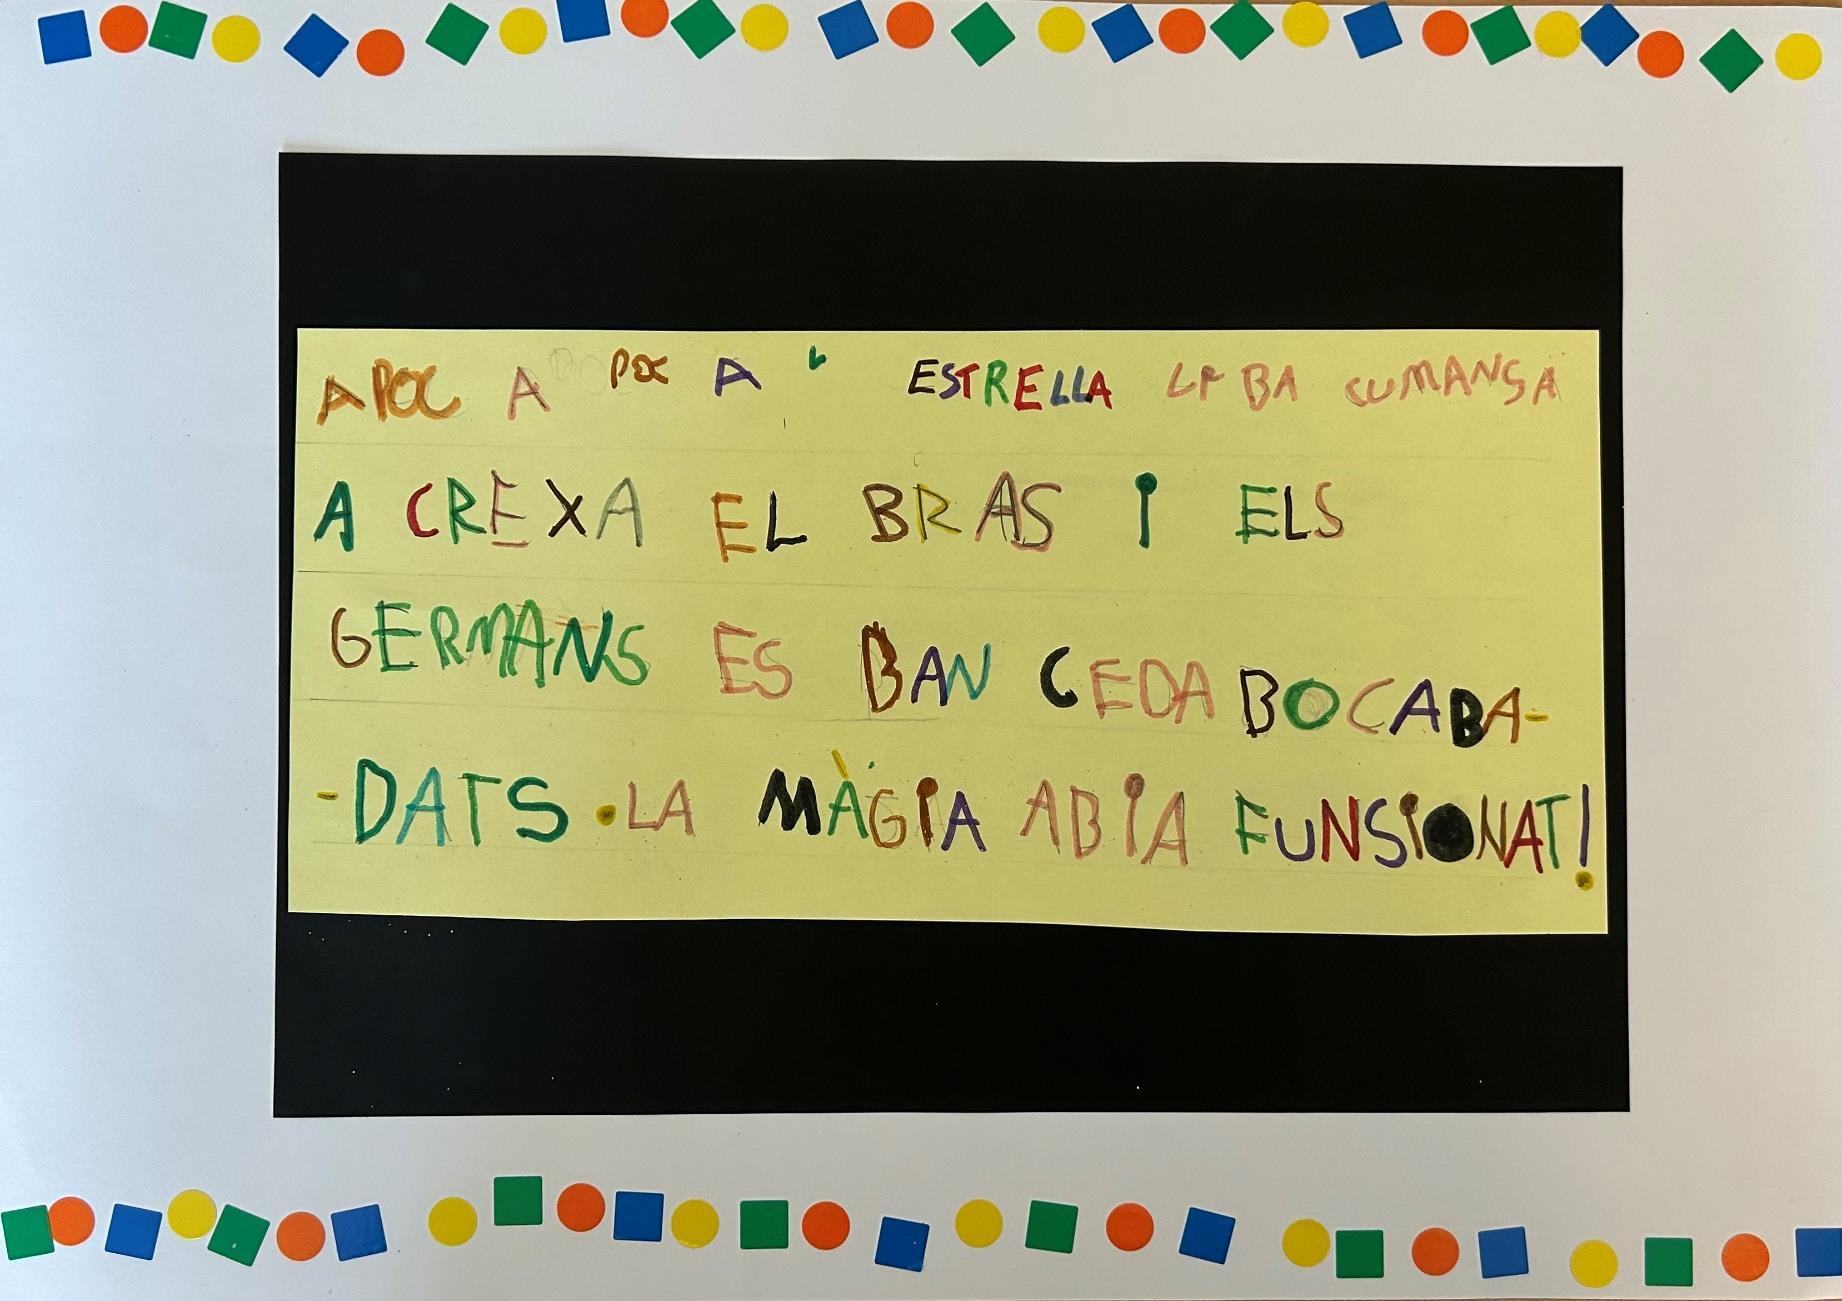 APOC A POC A L' ESTRELLA LI BA CUMANSA
A CREXA EL BRAS I ELS
GERMANS ES BAN CEDA BOCABA-
-DATS. LA MÀGIA ABIA FUNSIONAT!